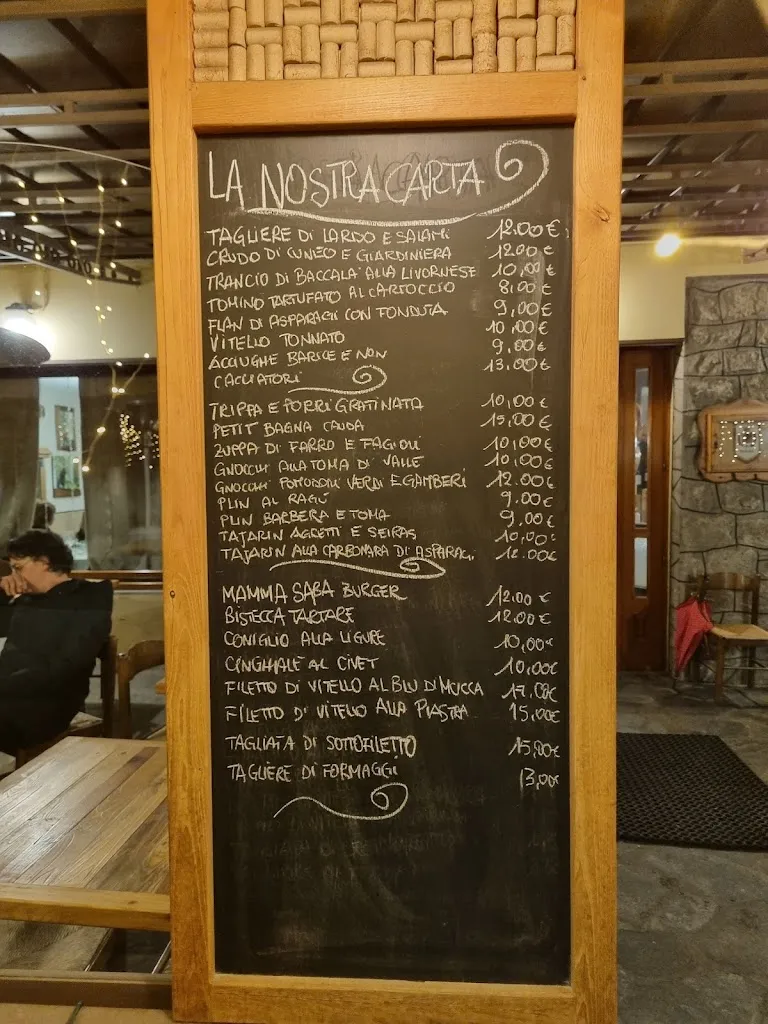 LA NOSTRA CARTA
TAGLIERE DI LARDO E SALAMI 12.00€
CRUDO DI CUNEO E GIARDINIERA 12.00€
TRANCIO DI BACCALA' ALLA LIVORNESE 10,00€
TOMINO TARTUFATO AL CARTOCCIO 8.00€
FLAN DI ASPARAGI CON FONDUTA 9,00€
VITELLO TONNATO 10,00€
ACCIUGHE E NON 9,00€
CACCIATORI 13.00€
TRIPPA E PORRI GRATINATA 10,00€
PETIT BAGNA CAUDA 15,00€
ZUPPA DI FARRO E FAGIOLI 10,00€
GNOCCHI ALLA TOMA DI VALLE 10,00€
GNOCCHI POMODORI VERDI E GAMBERI 12.00€
PLIN AL RAGÙ 9.00€
PLIN BARBERA E TOMA 9,00€
TAJARIN AGRETTI E SEIRAS 10,00€
TAJARIN ALLA CARBONARA DI ASPARAGI 12.00€
MAMMA SABA BURGER 12.00€
BISTECCA TARTARE 12.00€
CONIGLIO ALLA LIGURE 10,00€
CINGHIALE AL CIVET 10,00€
FILETTO DI VITELLO AL BLU DI MUCCA 17.00€
FILETTO DI VITELLO ALLA PIASTRA 15,00€
TAGLIATA DI SOTTOFILETTO 15,00€
TAGLIERE DI FORMAGGI 13,00€